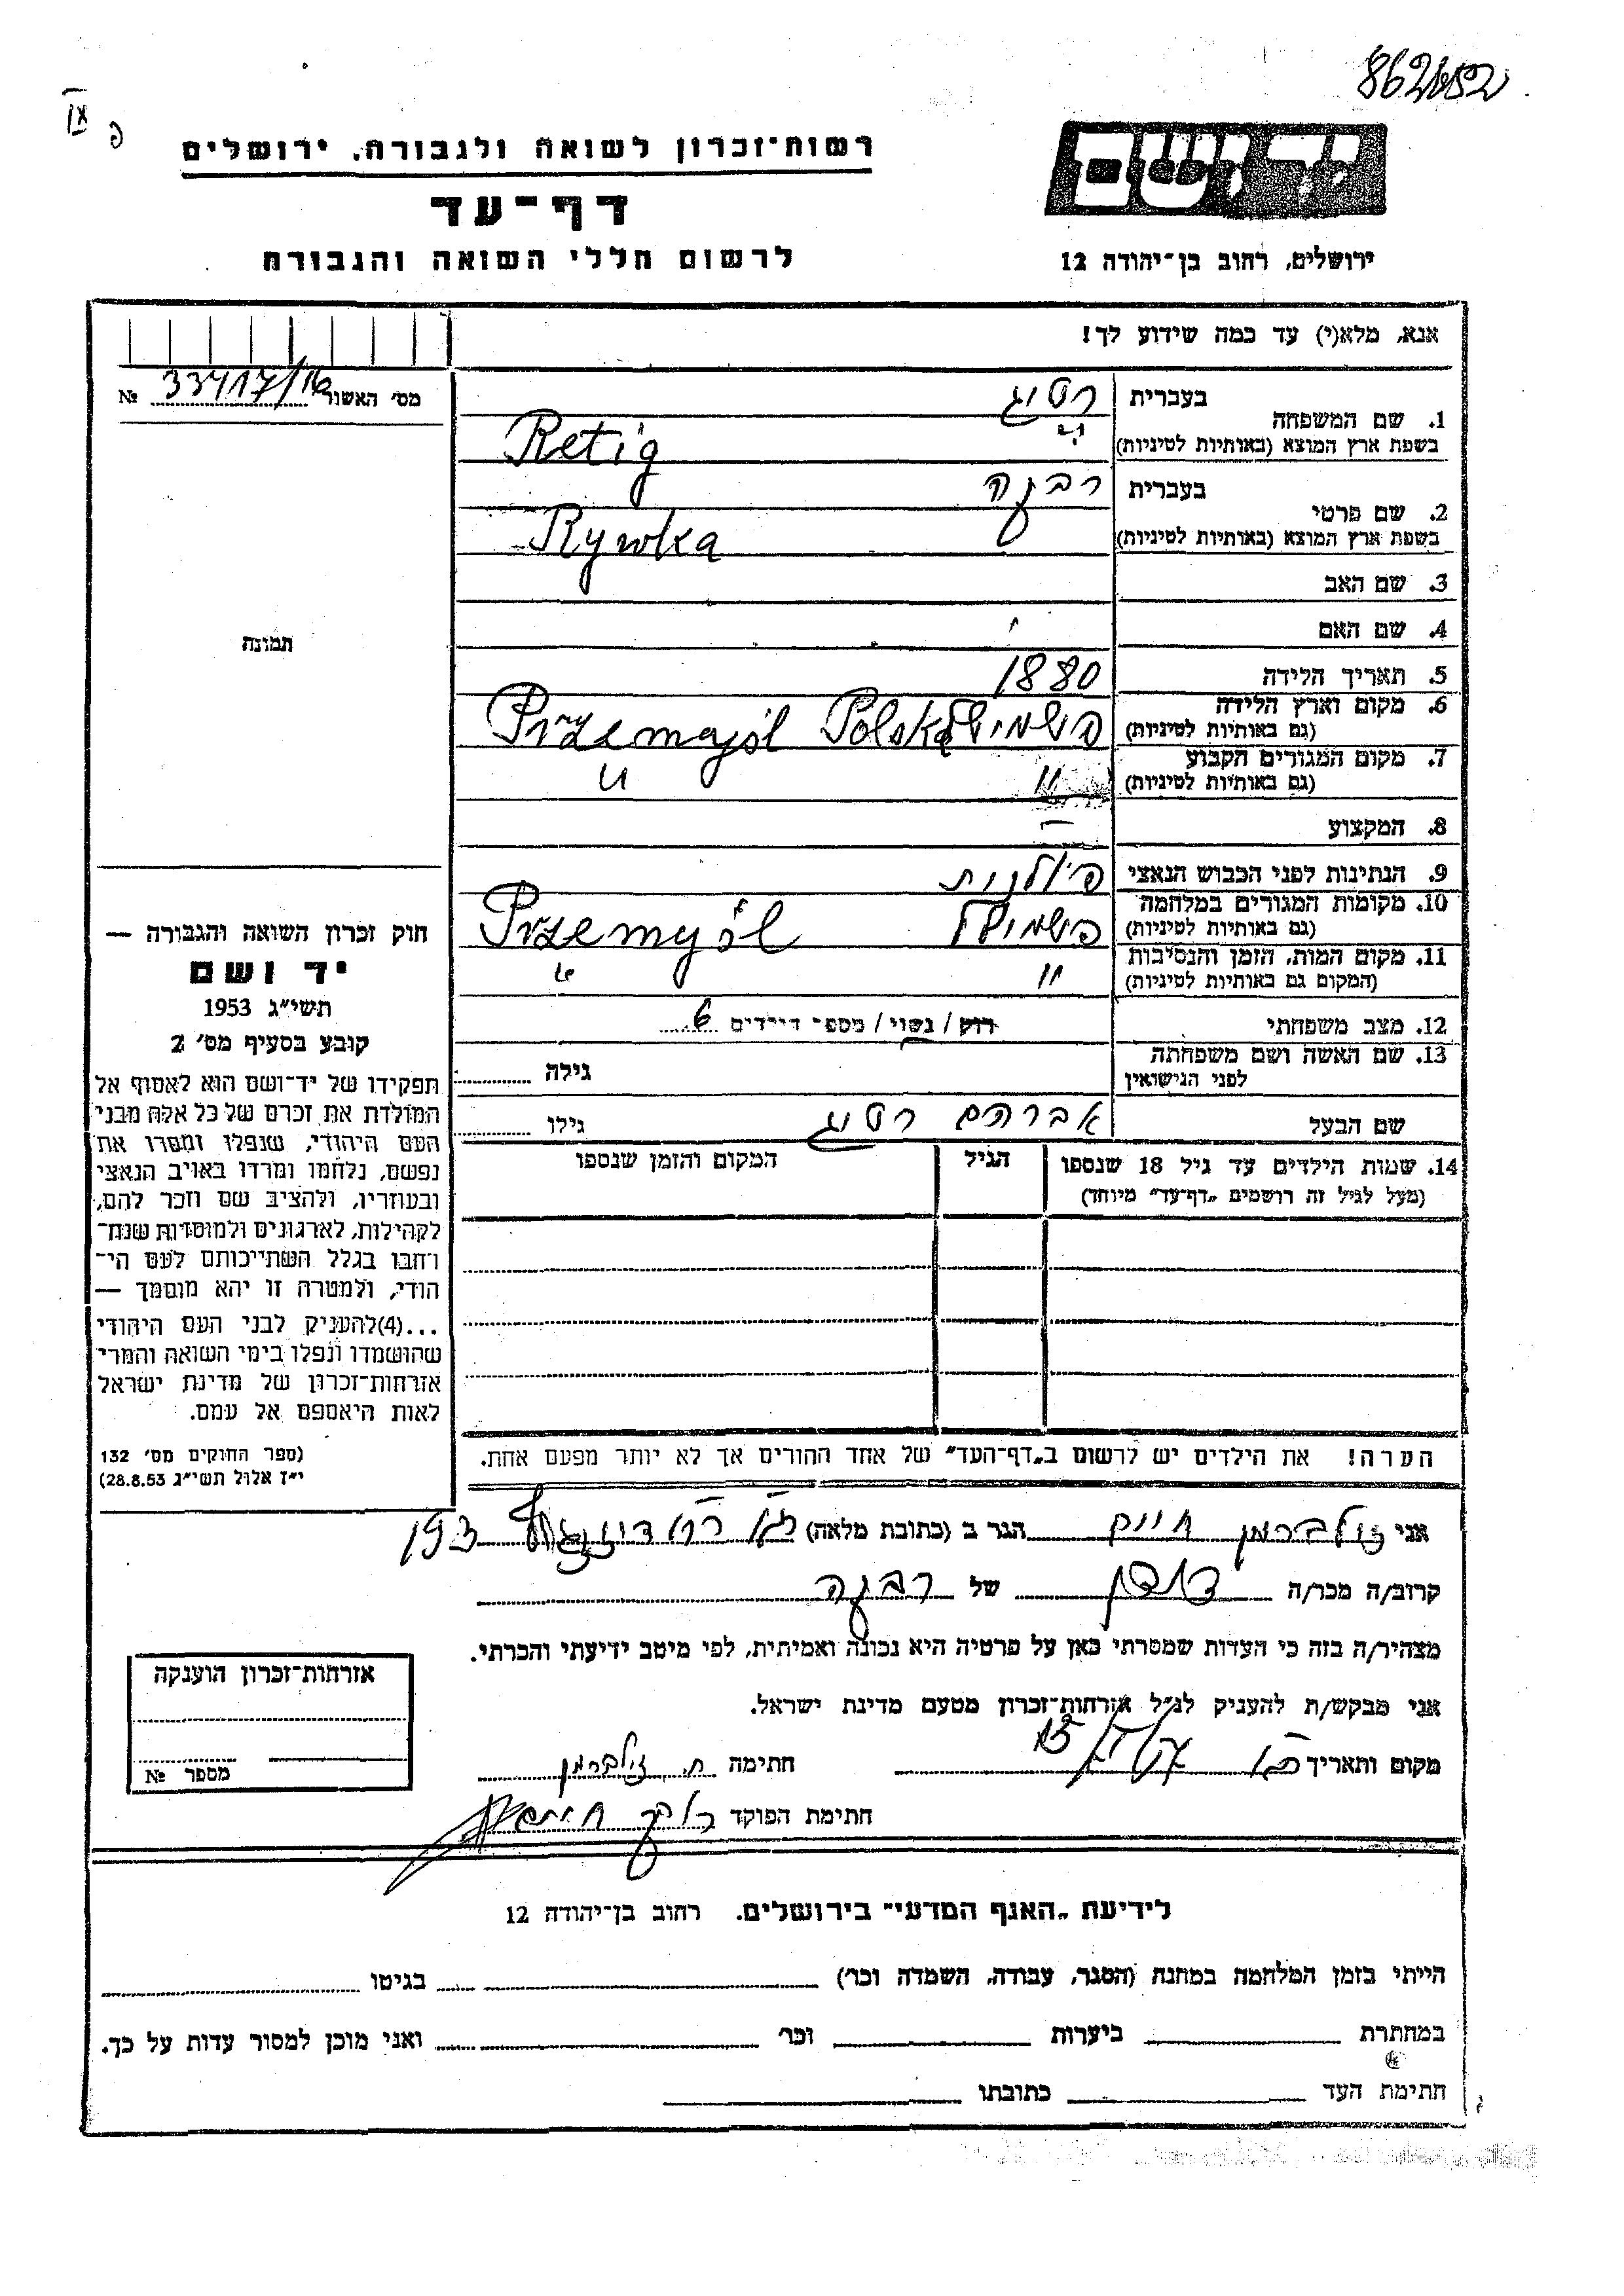 רשות־זכרון לשואה ולגבורה, ירושלים
דף־עד
לרשום חללי השואה והגבורה
יד ושם
ירושלים, רחוב בן־יהודה 12
אנא, מלא(י) עד כמה שידוע לך!
מס׳ האשור № 33417/16
1. שם המשפחה
בעברית רטיג
בשפת ארץ המוצא (באותיות לטיניות) Retig
2. שם פרטי
בעברית רבקה
בשפת ארץ המוצא (באותיות לטיניות) Rywka
3. שם האב
4. שם האם
5. תאריך הלידה 1880
6. מקום וארץ הלידה
(גם באותיות לטיניות) פשמישל Przemyśl Polska
7. מקום המגורים הקבוע
(גם באותיות לטיניות) " "
8. המקצוע —
9. הנתינות לפני הכבוש הנאצי פולנית
10. מקומות המגורים במלחמה
(גם באותיות לטיניות) פשמישל Przemyśl
11. מקום המות, הזמן והנסיבות
(המקום גם באותיות לטיניות) " "
12. מצב משפחתי רוק / נשוי / מספר הילדים 6
13. שם האשה ושם משפחתה
לפני הנישואין
גילה
שם הבעל אברהם רטיג גילו
14. שמות הילדים עד גיל 18 שנספו
(מעל לגיל זה רושמים „דף־עד" מיוחד)
הגיל
המקום והזמן שנספו
הערה! את הילדים יש לרשום ב„דף־העד" של אחד ההורים אך לא יותר מפעם אחת.
תמונה
חוק זכרון השואה והגבורה —
יד ושם
תשי״ג 1953
קובע בסעיף מס׳ 2
תפקידו של יד־ושם הוא לאסוף אל
המולדת את זכרם של כל אלה מבני
העם היהודי, שנפלו ומסרו את
נפשם, נלחמו ומרדו באויב הנאצי
ובעוזריו, ולהציב שם וזכר להם,
לקהילות, לארגונים ולמוסדות שנח־
רחבו בגלל השתייכותם לעם הי־
הודי, ולמטרה זו יהא מוסמך —
...(4)להעניק לבני העם היהודי
שהושמדו ונפלו בימי השואה והמרי
אזרחות־זכרון של מדינת ישראל
לאות היאספם אל עמם.
(ספר החוקים מס׳ 132
י״ז אלול תשי״ג 28.8.53)
אני זילברמן חיים הגר ב (כתובת מלאה) 193
קרוב/ה מכר/ה של רבקה
מצהיר/ה בזה כי העדות שמסרתי כאן על פרטיה היא נכונה ואמיתית, לפי מיטב ידיעתי והכרתי.
אני מבקש/ת להעניק לנ״ל אזרחות־זכרון מטעם מדינת ישראל.
מקום ותאריך חתימה ח. זילברמן
חתימת הפוקד
אזרחות־זכרון הוענקה
מספר №
לידיעת „האגף המדעי" בירושלים. רחוב בן־יהודה 12
הייתי בזמן המלחמה במחנה (הסגר, עבודה, השמדה וכר׳) בגיטו
במחתרת ביערות וכר׳ ואני מוכן למסור עדות על כך.
חתימת העד כתובתו